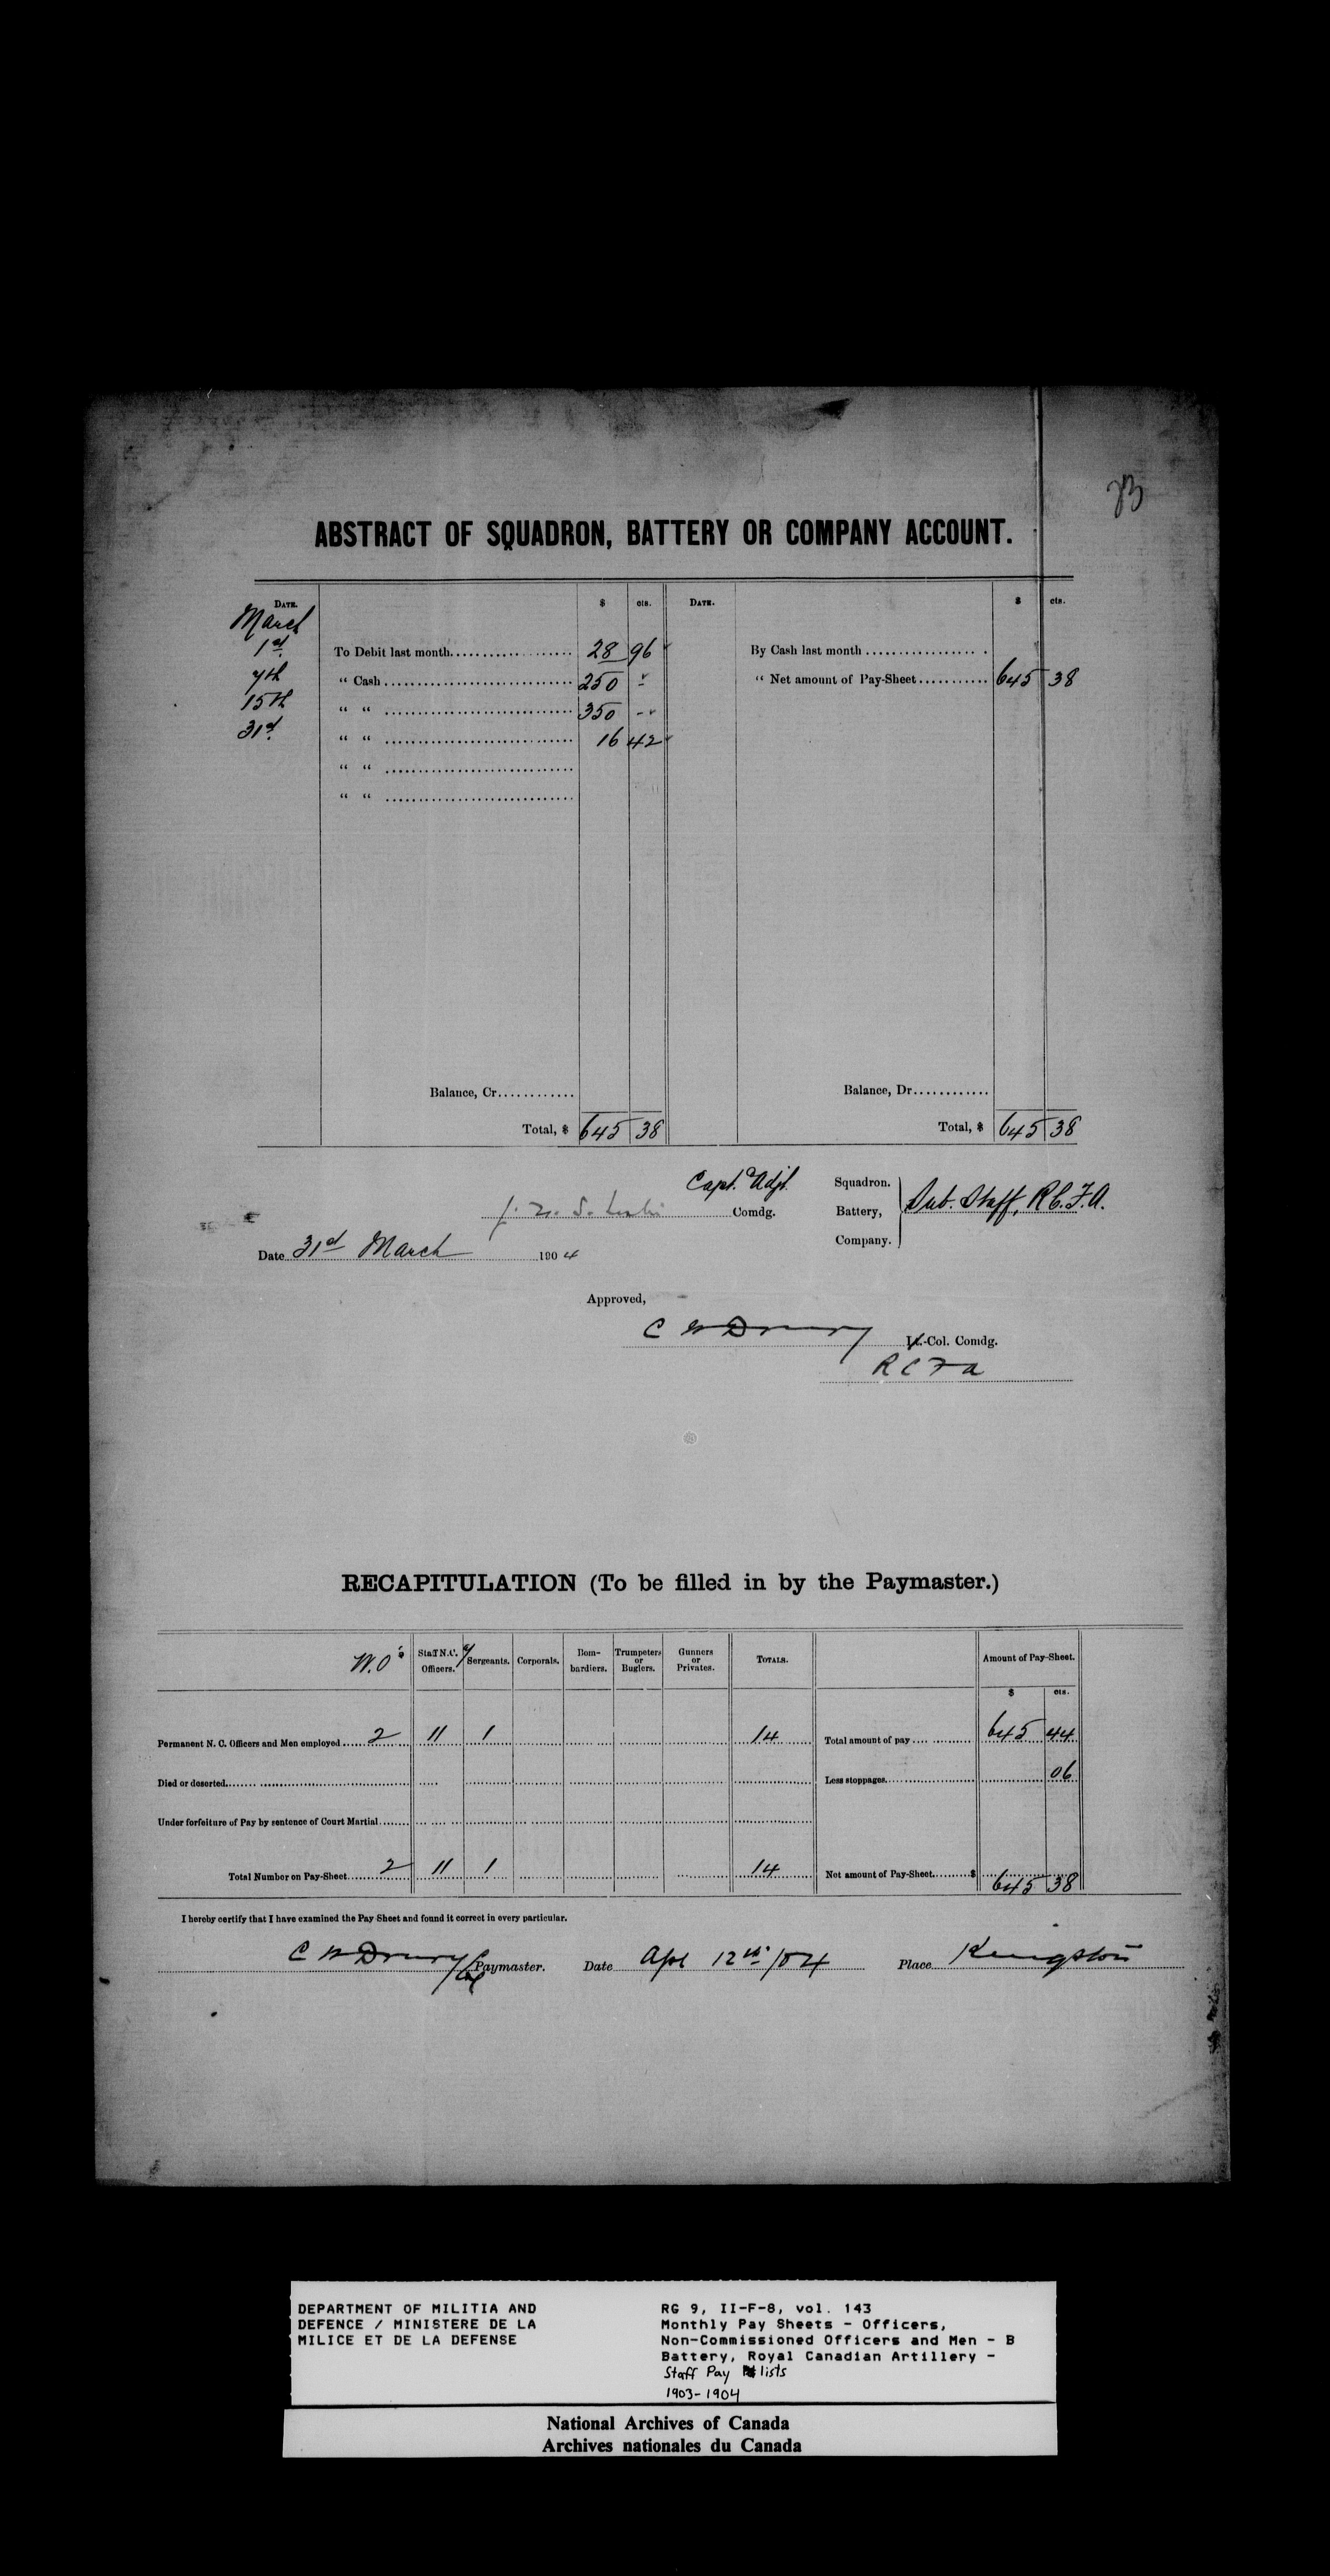 ABSTRACT OF SQUADRON, BATTERY OR COMPANY ACCOUNT.
DATE. $ cts. DATE. $ cts.
March
1st To Debit last month 28 96 By Cash last month
7th “ Cash 250 - “ Net amount of Pay-Sheet 645 38
15th “ “ 350 --
31st “ “ 16 42
“ “
“ “
Balance, Cr. Balance, Dr.
Total, $ 645 38 Total, $ 645 38
Capt. & Adjt. Squadron.
Comdg. Battery, Sub. Staff, R.C.F.A.
Company.
Date 31st March 1904
Approved,
C W Drury Lt.-Col. Comdg.
R C F A
RECAPITULATION (To be filled in by the Paymaster.)
W.O's Staff N.C. Officers. Sergeants. Corporals. Bom-bardiers. Trumpeters or Buglers. Gunners or Privates. TOTALS. Amount of Pay-Sheet.
$ cts.
Permanent N. C. Officers and Men employed 2 11 1 14 Total amount of pay 645 44
Died or deserted Less stoppages 06
Under forfeiture of Pay by sentence of Court Martial
Total Number on Pay-Sheet 2 11 1 14 Net amount of Pay-Sheet $ 645 38
I hereby certify that I have examined the Pay Sheet and found it correct in every particular.
C W Drury Paymaster. Date Apl 12th/04 Place Kingston
DEPARTMENT OF MILITIA AND
DEFENCE / MINISTERE DE LA
MILICE ET DE LA DEFENSE
RG 9, II-F-8, vol. 143
Monthly Pay Sheets - Officers,
Non-Commissioned Officers and Men - B
Battery, Royal Canadian Artillery -
Staff Pay lists
1903-1904
National Archives of Canada
Archives nationales du Canada